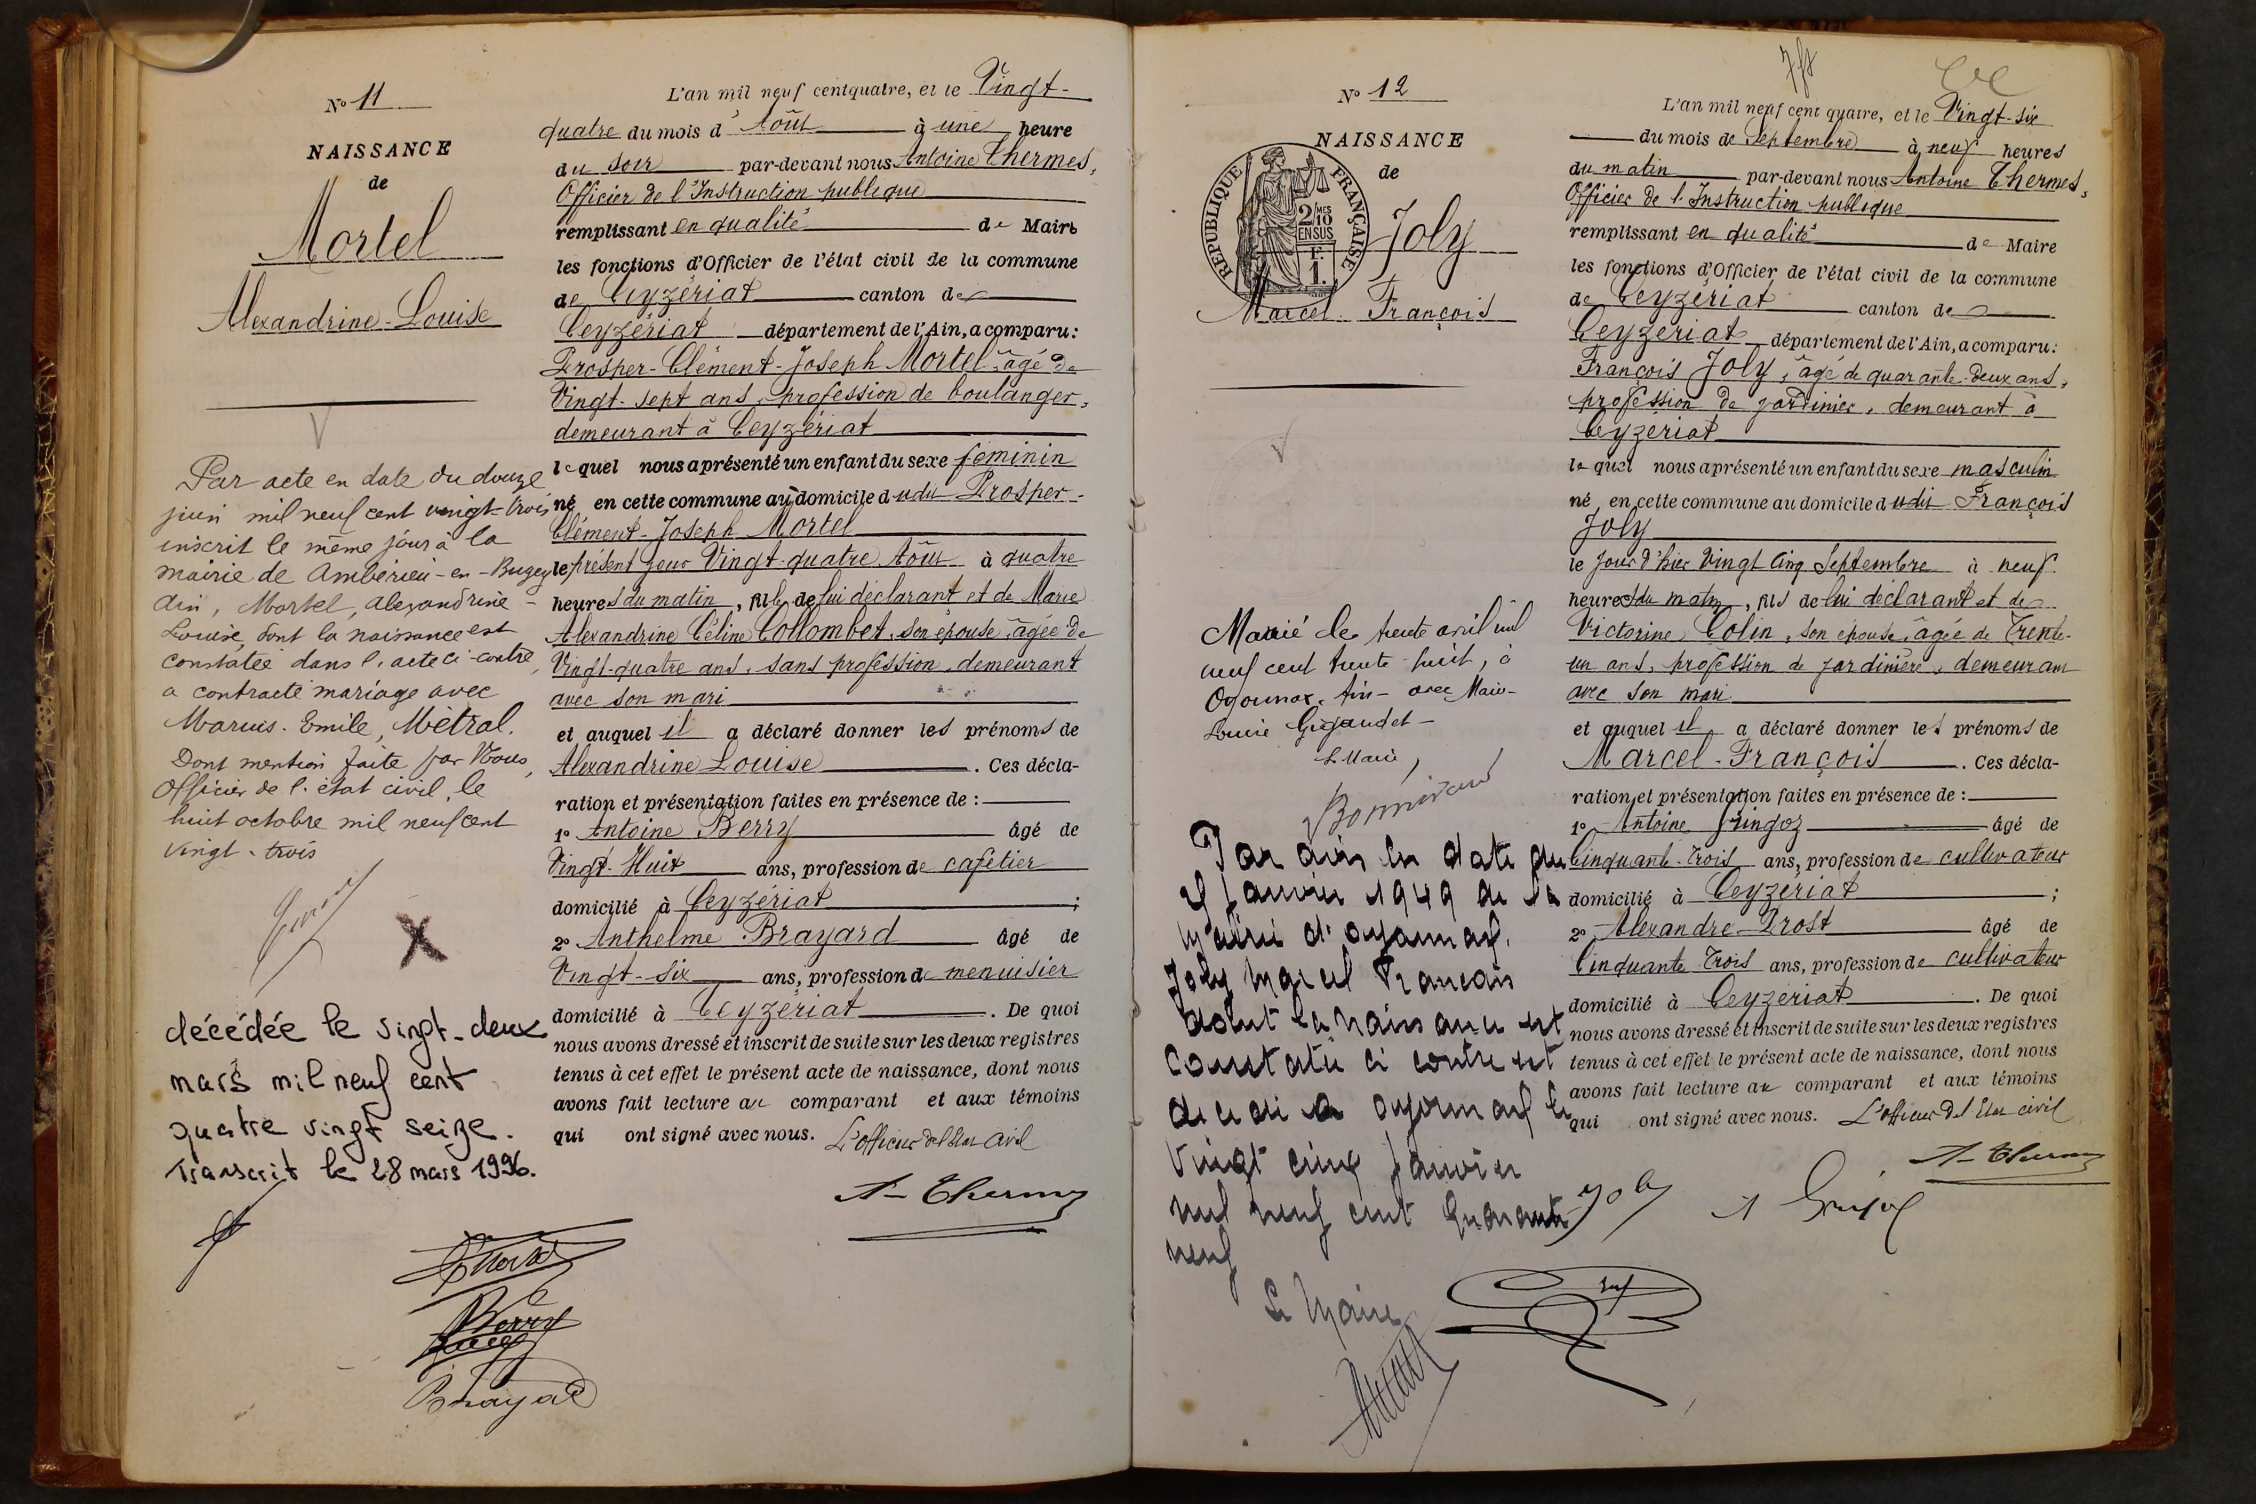 No 11
NAISSANCE
de
Mortel
Alexandrine-Louise
V
Par acte en date du douze
juin mil neuf cent vingt-trois
inscrit le même jour à la
mairie de Ambérieu-en-Bugey
Ain, Mortel, Alexandrine-
Louise, dont la naissance est
constatée dans l'acte ci-contre,
a contracté mariage avec
Marius-Emile, Métral.
Dont mention faite par Nous,
Officier de l'état civil, le
huit octobre mil neuf cent
vingt-trois
X
décédée le vingt-deux
mars mil neuf cent
quatre vingt seize.
Transcrit le 28 mars 1996.
L'an mil neuf cent quatre, et le Vingt-
quatre du mois d'Août à une heure
du soir par-devant nous Antoine Thermes,
Officier de l'Instruction publique
remplissant en qualité de Maire
les fonctions d'Officier de l'état civil de la commune
de Ceyzériat canton de
Ceyzériat département de l'Ain, a comparu:
Prosper-Clément-Joseph Mortel, âgé de
Vingt-sept ans, profession de boulanger,
demeurant à Ceyzériat
lequel nous a présenté un enfant du sexe féminin
né en cette commune au domicile dudit Prosper-
Clément-Joseph Mortel
le présent jour Vingt-quatre Août à quatre
heures du matin, fille de lui déclarant et de Marie
Alexandrine Céline Collombet, son épouse, âgée de
Vingt-quatre ans, sans profession, demeurant
avec son mari
et auquel il a déclaré donner les prénoms de
Alexandrine Louise. Ces décla-
ration et présentation faites en présence de :
1º Antoine Berry âgé de
Vingt-Huit ans, profession de cafetier
domicilié à Ceyzériat ;
2º Anthelme Brayard âgé de
Vingt-six ans, profession de menuisier
domicilié à Ceyzériat. De quoi
nous avons dressé et inscrit de suite sur les deux registres
tenus à cet effet le présent acte de naissance, dont nous
avons fait lecture au comparant et aux témoins
qui ont signé avec nous. L'officier de l'Etat Civil
A. Thermes
Mortel
Berry
Brayard
No 12
NAISSANCE
de
REPUBLIQUE FRANÇAISE
2/10 MES
EN SUS
F.
1.
Joly
Marcel François
V
Marié le trente avril mil
neuf cent trente-huit, à
Oyonnax, Ain - avec Marie-
Louise
Le Maire,
Par avis en date du
Janvier 1949 de la
Mairie d'Oyonnax,
Joly Marcel François
dont la naissance est
constatée ci contre est
décédé à Oyonnax le
vingt cinq Janvier
mil neuf cent quarante
neuf
Le Maire
L'an mil neuf cent quatre, et le Vingt-six
du mois de Septembre à neuf heures
du matin par-devant nous Antoine Thermes,
Officier de l'Instruction publique
remplissant en qualité de Maire
les fonctions d'Officier de l'état civil de la commune
de Ceyzériat canton de
Ceyzériat département de l'Ain, a comparu:
François Joly, âgé de quarante-deux ans,
profession de jardinier, demeurant à
Ceyzériat
lequel nous a présenté un enfant du sexe masculin
né, en cette commune au domicile dudit François
Joly
le jour d'hier Vingt Cinq Septembre à neuf
heures du matin, fils de lui déclarant et de
Victorine Colin, son épouse, âgée de Trente-
un ans, profession de jardinière, demeurant
avec son mari
et auquel il a déclaré donner les prénoms de
Marcel-François. Ces décla-
ration et présentation faites en présence de :
1º Antoine âgé de
Cinquante-Trois ans, profession de cultivateur
domicilié à Ceyzériat ;
2º Alexandre Prost âgé de
Cinquante Trois ans, profession de cultivateur
domicilié à Ceyzériat. De quoi
nous avons dressé et inscrit de suite sur les deux registres
tenus à cet effet le présent acte de naissance, dont nous
avons fait lecture au comparant et aux témoins
qui ont signé avec nous. L'officier de l'Etat civil
A. Thermes
Joly